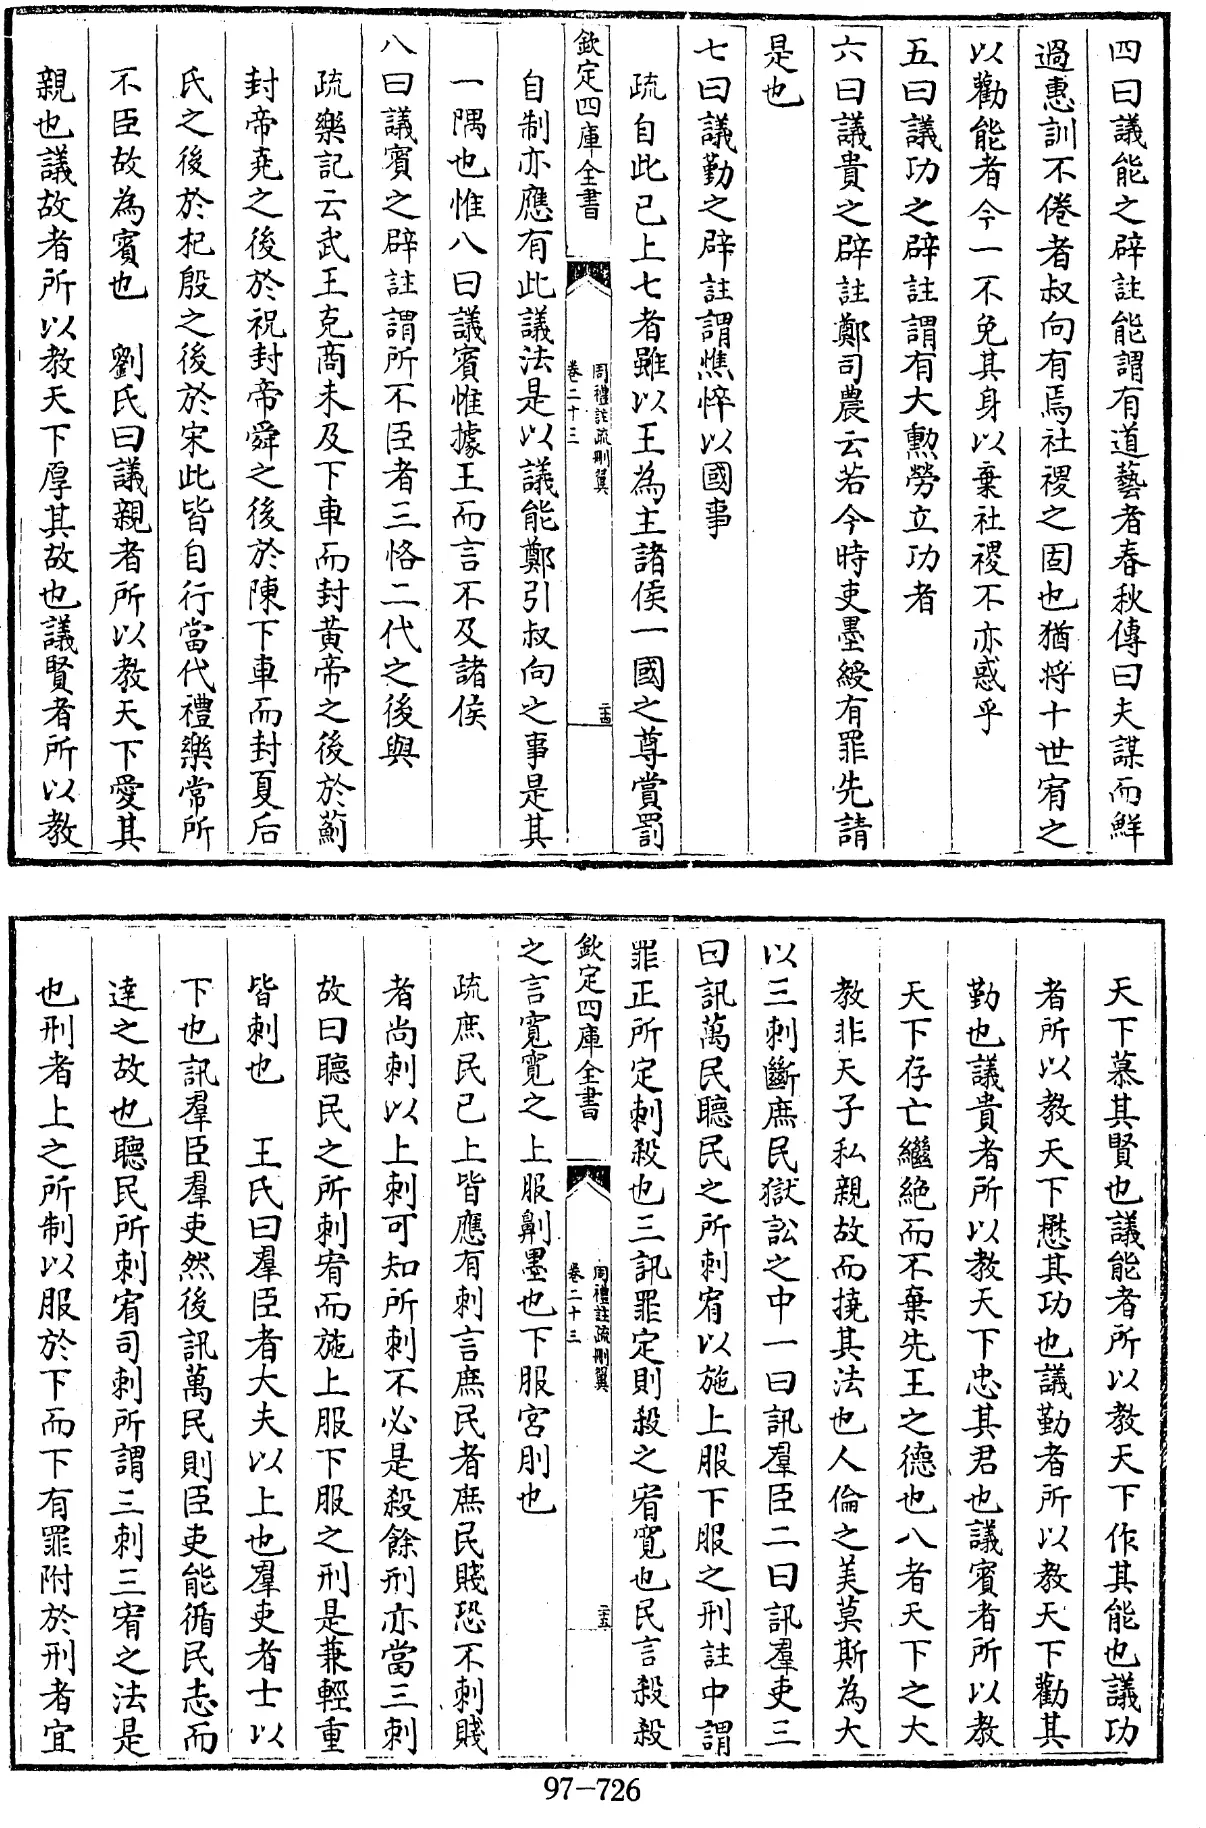 四曰議能之辟註能謂有道藝者春秋傳曰夫謀而鮮
過惠訓不倦者叔向有焉社稷之固也猶將十世宥之
以勸能者今一不免其身以棄社稷不亦惑乎
五曰議功之辟註謂有大勲勞立功者
六曰議貴之辟註鄭司農云若今時吏墨綬有罪先請
是也
七曰議勤之辟註謂憔悴以國事
疏自此已上七者雖以王為主諸侯一國之尊賞罰
欽定四庫全書
周禮註疏刪翼
卷二十三
二十四
自制亦應有此議法是以議能鄭引叔向之事是其
一隅也惟八曰議賓惟據王而言不及諸侯
八曰議賓之辟註謂所不臣者三恪二代之後與
疏樂記云武王克商未及下車而封黄帝之後於薊
封帝堯之後於祝封帝舜之後於陳下車而封夏后
氏之後於杞殷之後於宋此皆自行當代禮樂常所
不臣故為賓也　劉氏曰議親者所以教天下愛其
親也議故者所以教天下厚其故也議賢者所以教
天下慕其賢也議能者所以教天下作其能也議功
者所以教天下懋其功也議勤者所以教天下勸其
勤也議貴者所以教天下忠其君也議賓者所以教
天下存亡繼絶而不棄先王之德也八者天下之大
教非天子私親故而撓其法也人倫之美莫斯為大
以三刺斷庶民獄訟之中一曰訊羣臣二曰訊羣吏三
曰訊萬民聽民之所刺宥以施上服下服之刑註中謂
罪正所定刺殺也三訊罪定則殺之宥寛也民言殺殺
欽定四庫全書
周禮註疏刪翼
卷二十三
二十五
之言寛寛之上服劓墨也下服宮刖也
疏庶民已上皆應有刺言庶民者庶民賤恐不刺賤
者尚刺以上刺可知所刺不必是殺餘刑亦當三刺
故曰聽民之所刺宥而施上服下服之刑是兼輕重
皆刺也　王氏曰羣臣者大夫以上也羣吏者士以
下也訊羣臣羣吏然後訊萬民則臣吏能循民志而
達之故也聽民所刺宥司刺所謂三刺三宥之法是
也刑者上之所制以服於下而下有罪附於刑者宜
97-726